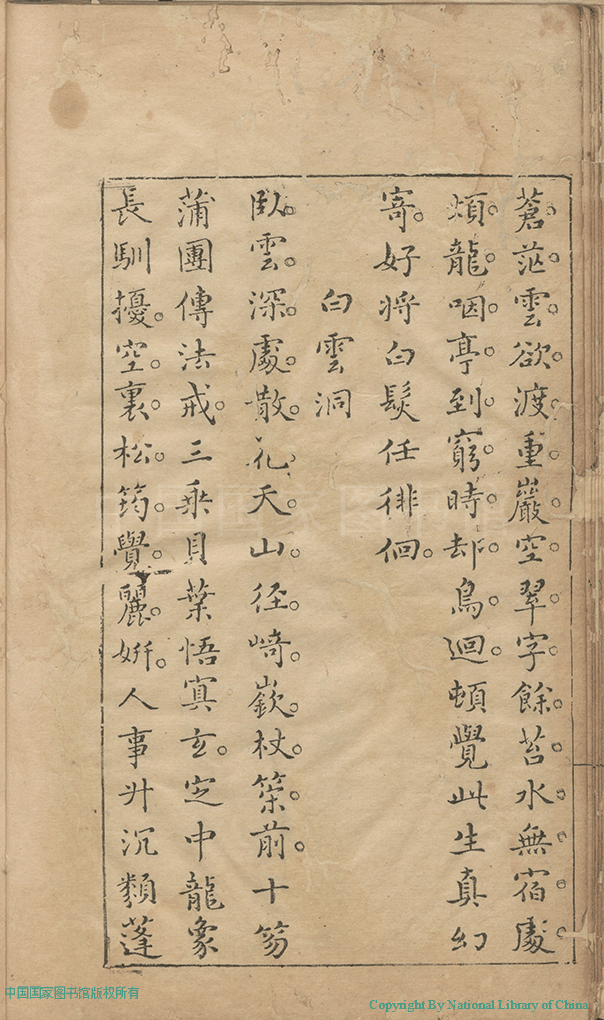 蒼茫雲欲渡重巖空翠字餘苔水無宿處
煩龍咽亭到窮時却鳥迴頓覺此生真幻
寄好將白髮任徘徊
白雲洞
臥雲深處散花天山徑崎嶔杖築前十笏
蒲團傳法戒三乘貝葉悟寘玄定中龍象
長馴擾空裏松筠覺麗妍人事升沉類蓬
中国国家图书馆版权所有
Copyright By National Library of China